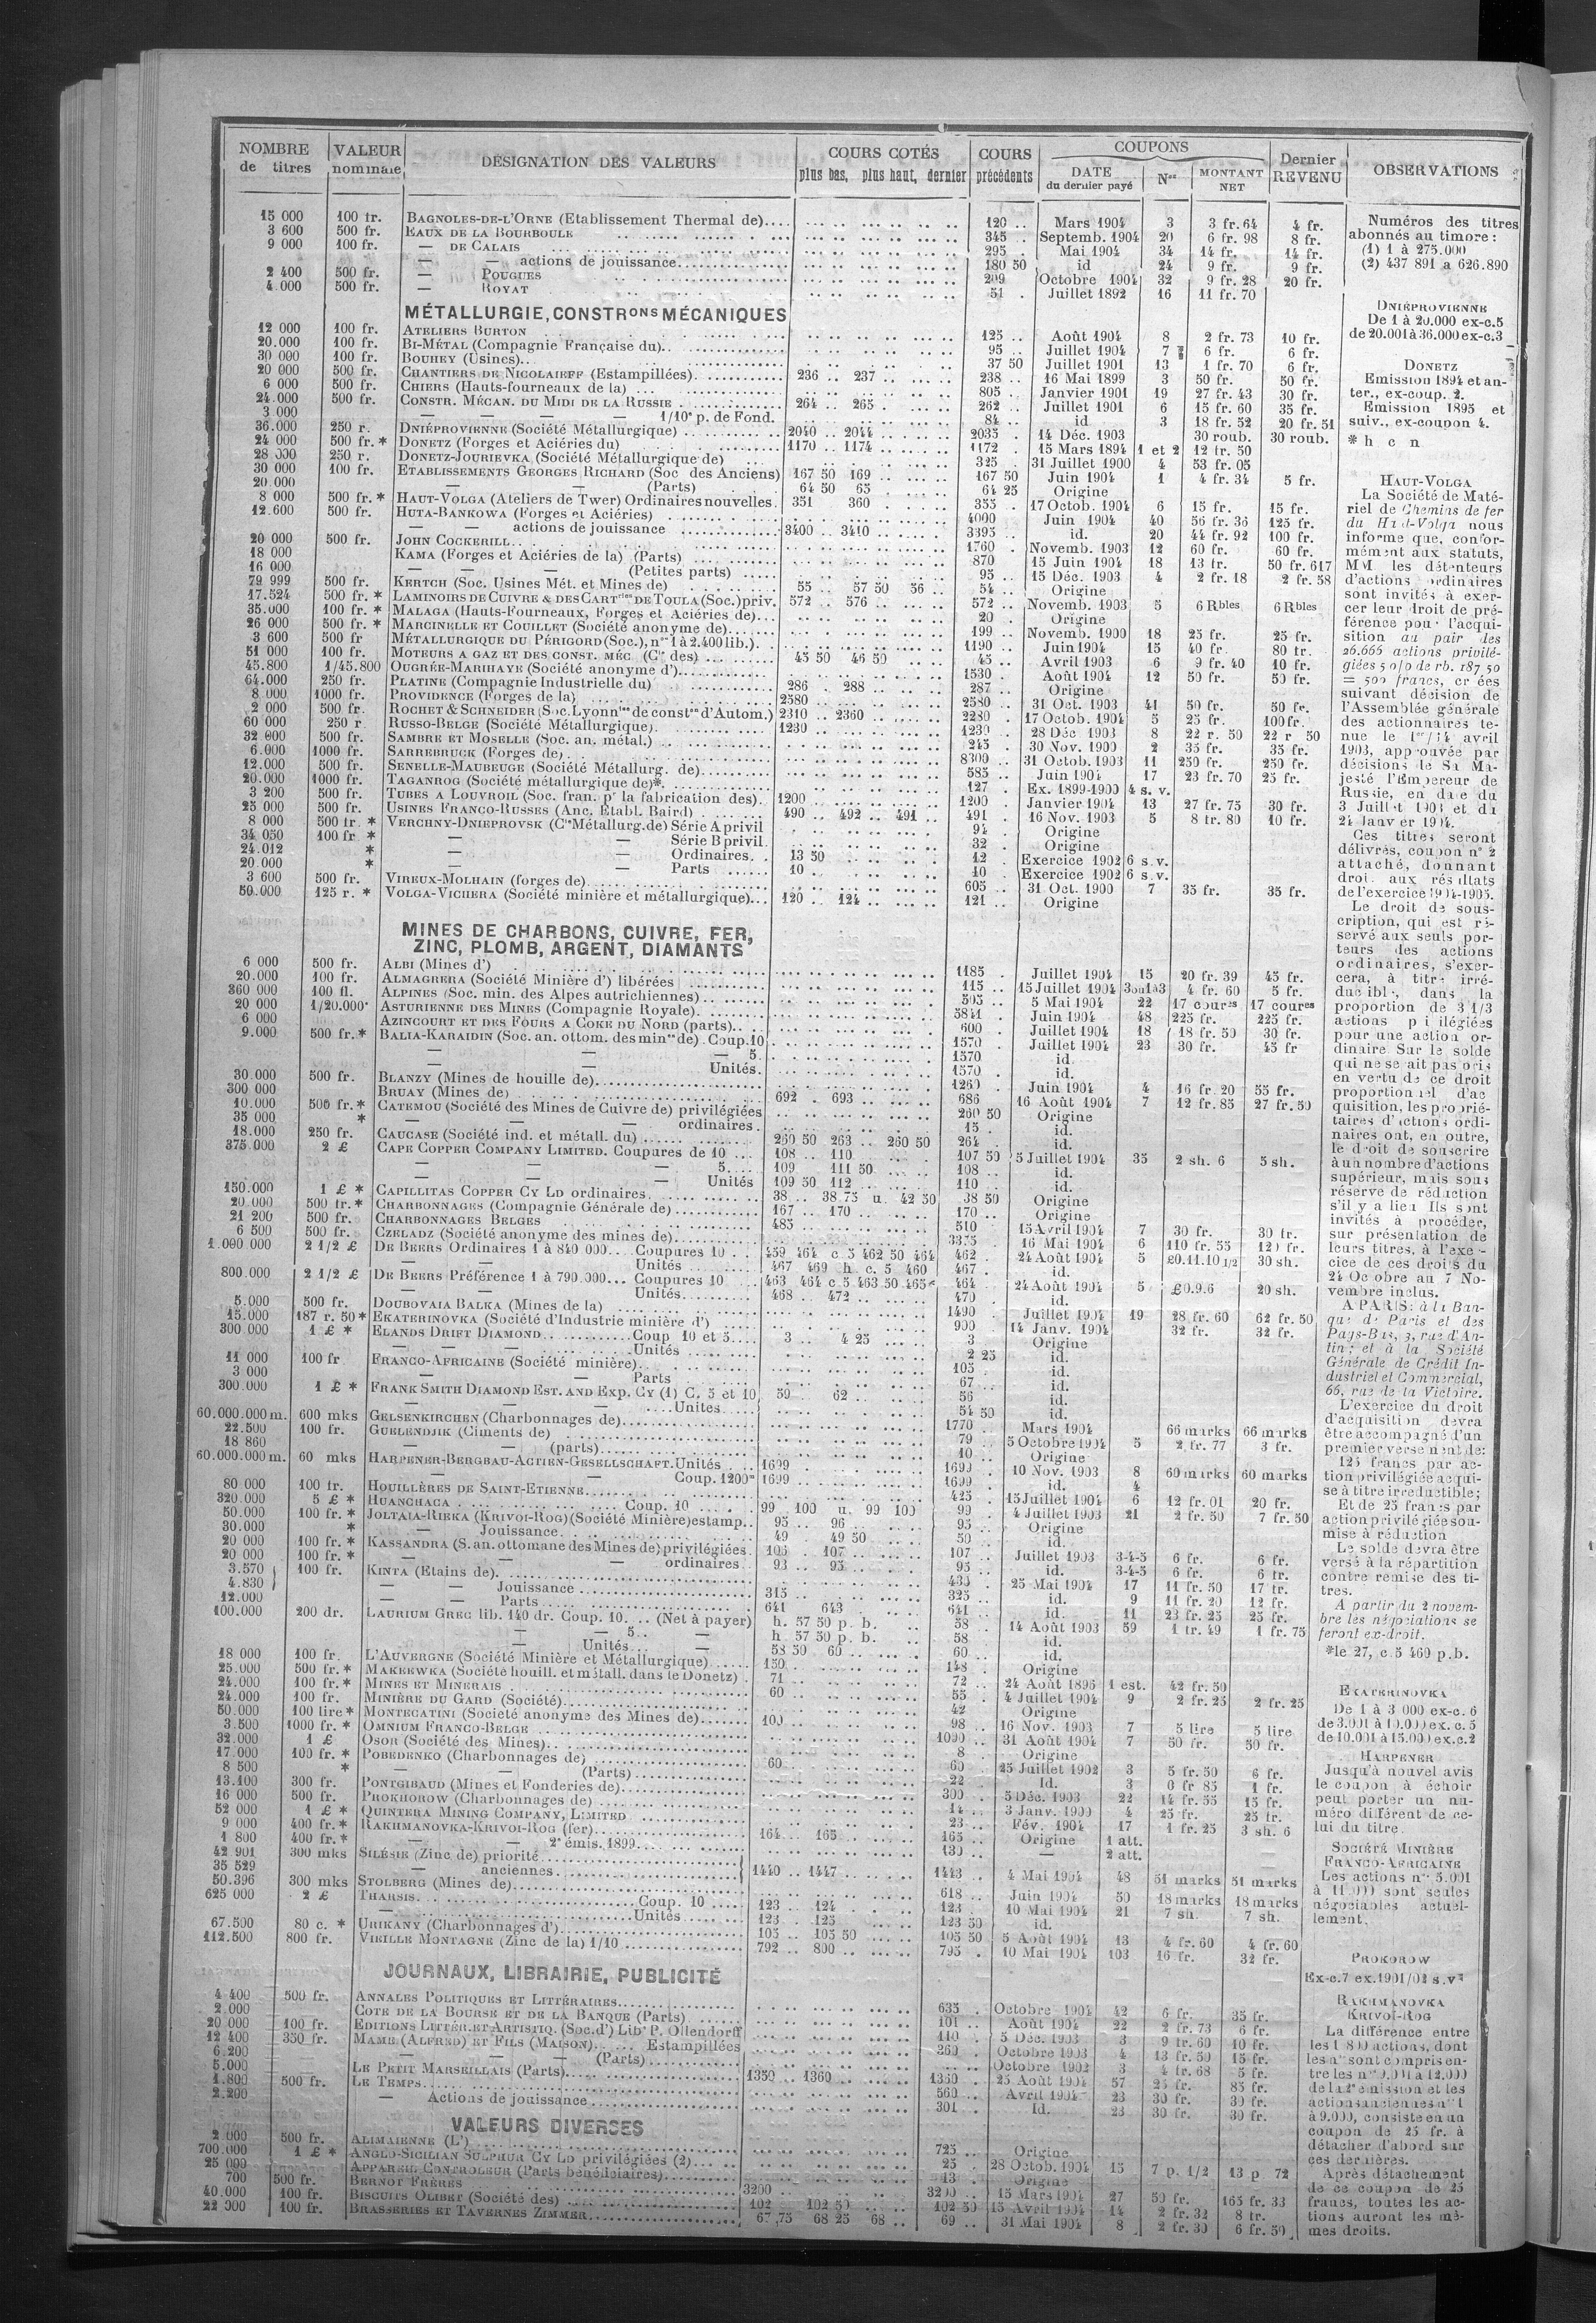 NOMBRE de titres | VALEUR nominale | DESIGNATION DES VALEURS | COURS COTÉS plus bas, plus haut, dernier | COURS précédents | COUPONS DATE du dernier payé | Nos | MONTANT NET | Dernier REVENU | OBSERVATIONS
15 000 100 fr. BAGNOLES-DE-L'ORNE (Etablissement Thermal de).... 120 .. Mars 1904 3 3 fr. 64 4 fr.
3 600 500 fr. EAUX DE LA BOURBOULE 345 .. Septemb. 1904 20 6 fr. 98 8 fr.
9 000 100 fr. — DE CALAIS 295 . Mai 1904 34 14 fr. 14 fr.
— — actions de jouissance 180 50 id 24 9 fr. 9 fr.
2 400 500 fr. — POUGUES 209 Octobre 1904 32 9 fr. 28 20 fr.
4.000 500 fr. — ROYAT 51 . Juillet 1892 16 11 fr. 70
MÉTALLURGIE, CONSTRons MÉCANIQUES
12 000 100 fr. ATELIERS BURTON 125 .. Août 1904 8 2 fr. 73 10 fr.
20.000 100 fr. BI-MÉTAL (Compagnie Française du).. 95 .. Juillet 1904 7 6 fr. 6 fr.
30 000 100 fr. BOUHEY (Usines).. 37 50 Juillet 1901 13 1 fr. 70 6 fr.
20 000 500 fr. CHANTIERS DE NICOLAIEFF (Estampillées). 236 .. 237 .. 238 .. 16 Mai 1899 3 50 fr. 50 fr.
6 000 500 fr. CHIERS (Hauts-fourneaux de la) 805 .. Janvier 1901 19 27 fr. 43 30 fr.
24.000 500 fr. CONSTR. MÉCAN. DU MIDI DE LA RUSSIE 264 .. 265 . 262 .. Juillet 1901 6 15 fr. 60 35 fr.
3 000 — — — — 1/10e p. de Fond. 84 .. id 3 18 fr. 52 20 fr. 51
36.000 250 r. DNIÉPROVIENNE (Société Métallurgique) 2040 .. 2044 .. 2035 . 14 Déc. 1903 30 roub. 30 roub.
24 000 500 fr. * DONETZ (Forges et Aciéries du) 1170 .. 1174 .. 1172 . 15 Mars 1894 1 et 2 12 fr. 50
28 000 250 r. DONETZ-JOURIEVKA (Société Métallurgique de) 325 . 31 Juillet 1900 4 53 fr. 05
30 000 100 fr. ETABLISSEMENTS GEORGES RICHARD (Soc des Anciens) 167 50 169 .. 167 50 Juin 1904 1 4 fr. 34 5 fr.
20.000 — — (Parts) 64 50 65 . 64 25 Origine
8 000 500 fr. * HAUT-VOLGA (Ateliers de Twer) Ordinaires nouvelles. 351 360 355 . 17 Octob. 1904 6 15 fr. 15 fr.
12.600 500 fr. HUTA-BANKOWA (Forges et Aciéries) 4000 Juin 1904 40 56 fr. 36 125 fr.
— — actions de jouissance 3400 .. 3410 .. 3395 .. id. 20 44 fr. 92 100 fr.
20 000 500 fr. JOHN COCKERILL.. 1760 . Novemb. 1903 12 60 fr. 60 fr.
18 000 KAMA (Forges et Aciéries de la) (Parts) 870 15 Juin 1904 18 13 fr. 50 fr. 617
16 000 — — — (Petites parts) 95 .. 15 Déc. 1903 4 2 fr. 18 2 fr. 58
79 999 500 fr. KERTCH (Soc. Usines Mét. et Mines de) 55 .. 57 50 56 .. 54 .. Origine
17.524 500 fr. * LAMINOIRS DE CUIVRE & DES CARTries DE TOULA (Soc.) priv. 572 .. 576 .. 572 .. Novemb. 1903 5 6 Rbles 6 Rbles
35.000 100 fr. * MALAGA (Hauts-Fourneaux, Forges et Aciéries de)... 20 . Origine
26 000 500 fr. * MARCINELLE ET COUILLET (Société anonyme de) 199 .. Novemb. 1900 18 25 fr. 25 fr.
3 600 500 fr MÉTALLURGIQUE DU PÉRIGORD (Soc.), nos 1 à 2.400 lib.). 1190 .. Juin 1904 15 40 fr. 80 fr.
51 000 100 fr. MOTEURS A GAZ ET DES CONST. MÉC. (Cie des) 45 50 46 50 45 .. Avril 1903 6 9 fr. 40 10 fr.
45.800 1/45.800 OUGRÉE-MARIHAYE (Société anonyme d') 1530 .. Août 1904 12 50 fr. 50 fr.
64.000 250 fr. PLATINE (Compagnie Industrielle du) 286 .. 288 .. 287 .. Origine
8 000 1000 fr. PROVIDENCE (Forges de la) 2580 .. 2580 .. 31 Oct. 1903 41 50 fr. 50 fr.
2 000 500 fr. ROCHET & SCHNEIDER (Soc. Lyonnise de conston d'Autom.) 2310 .. 2360 .. 2280 .. 17 Octob. 1904 5 25 fr. 100 fr.
60 000 250 r. RUSSO-BELGE (Société Métallurgique). 1230 .. 1230 .. 28 Déc 1903 8 22 r. 50 22 r 50
32 000 500 fr. SAMBRE ET MOSELLE (Soc. an. métal.) 245 .. 30 Nov. 1900 2 35 fr. 35 fr.
6.000 1000 fr. SARREBRUCK (Forges de) 8300 .. 31 Octob. 1903 11 250 fr. 250 fr.
12.000 500 fr. SENELLE-MAUBEUGE (Société Métallurg. de) 585 .. Juin 1904 17 23 fr. 70 25 fr.
20.000 1000 fr. TAGANROG (Société métallurgique de)*. 127 . Ex. 1899-1900 4 s. v.
3 200 500 fr. TUBES A LOUVROIL (Soc. fran. pr la fabrication des). 1200 .. 1200 .. Janvier 1904 13 27 fr. 75 30 fr.
25 000 500 fr. USINES FRANCO-RUSSES (Anc. Etabl. Baird) 490 .. 492 .. 491 .. 491 . 16 Nov. 1903 5 8 fr. 80 10 fr.
8 000 500 fr. * VERCHNY-DNIEPROVSK (Cie Métallurg. de) Série A privil 94 . Origine
34 050 100 fr * — — Série B privil. 32 . Origine
24.012 * — — Ordinaires. 13 50 12 . Exercice 1902 6 s. v.
20 000 * — — Parts 10 .. 10 . Exercice 1902 6 s. v.
3 600 500 fr. VIREUX-MOLHAIN (forges de) 605 .. 31 Oct. 1900 7 35 fr. 35 fr.
50.000 125 r. * VOLGA-VICHERA (Société minière et métallurgique)... 120 .. 124 .. 121 .. Origine
MINES DE CHARBONS, CUIVRE, FER,
ZINC, PLOMB, ARGENT, DIAMANTS
6 000 500 fr. ALBI (Mines d') 1185 . Juillet 1904 15 20 fr. 39 45 fr.
20.000 100 fr. ALMAGRERA (Société Minière d') libérées 115 .. 15 Juillet 1904 4 fr. 60 5 fr.
360 000 100 fl. ALPINES (Soc. min. des Alpes autrichiennes) 505 .. 5 Mai 1904 22 17 coures 17 coures
20 000 1/20.000e ASTURIENNE DES MINES (Compagnie Royale). 5841 . Juin 1904 48 225 fr. 225 fr.
6 000 AZINCOURT ET DES FOURS A COKE DU NORD (parts).. 600 . Juillet 1904 18 18 fr. 50 30 fr.
9.000 500 fr. * BALIA-KARAIDIN (Soc. an. ottom. des mines de) . Coup. 10 1570 . Juillet 1904 23 30 fr. 45 fr
— — — 5. 1570 id.
— Unités. 1570 . id.
30.000 500 fr. BLANZY (Mines de houille de) 1260 . Juin 1904 4 16 fr. 20 55 fr.
300 000 BRUAY (Mines de) 692 . 693 .. 686 16 Août 1904 7 12 fr. 85 27 fr. 50
10.000 500 fr. * CATEMOU (Société des Mines de Cuivre de) privilégiées 260 50 Origine
35 000 * — — ordinaires. 15 . id.
18.000 250 fr. CAUCASE (Société ind. et métall. du) 260 50 263 .. 260 50 264 . id.
375.000 2 £ CAPE COPPER COMPANY LIMITED. Coupures de 10 108 .. 110 107 50 5 Juillet 1904 35 2 sh. 6 5 sh.
— — — 5.... 109 111 50 108 .. id.
— — Unités 109 50 112 .. 110 .. id.
150.000 1 £ * CAPILLITAS COPPER CY LD ordinaires. 38 .. 38 75 u. 42 50 38 50 Origine
20 000 500 fr. * CHARBONNAGES (Compagnie Générale de) 167 .. 170 .. 170 .. Origine
21 200 500 fr. CHARBONNAGES BELGES 485 510 15 Avril 1904 7 30 fr. 30 fr.
6 500 500 fr. CZELADZ (Société anonyme des mines de) 3375 16 Mai 1904 6 110 fr. 55 120 fr.
1.000 000 2 1/2 £ DE BEERS Ordinaires 1 à 840 000... Coupures 10 459 464 c. 5 462 50 464 462 . 24 Août 1904 5 £0.11.10 1/2 30 sh.
— — Unités 467 469 h. c. 5 460 467 . id.
800.000 2 1/2 £ DE BEERS Préférence 1 à 790.000... Coupures 10 463 464 c. 5 463 50 465 464 . 24 Août 1904 5 £0.9.6 20 sh.
— Unités 468 .. 472 .. 470 . id.
5.000 500 fr. DOUBOVAIA BALKA (Mines de la) 1490 . Juillet 1904 19 28 fr. 60 62 fr. 50
15.000 187 r. 50 * EKATERINOVKA (Société d'Industrie minière d') 900 . 14 Janv. 1904 32 fr. 32 fr.
300 000 1 £ * ELANDS DRIFT DIAMOND Coup 10 et 5 3 .. 4 25 3 Origine
— — Unités 2 25 id.
11 000 100 fr FRANCO-AFRICAINE (Société minière). 105 . id.
3 000 — — Parts 67 .. id.
300.000 1 £ * FRANK SMITH DIAMOND EST. AND EXP. CY (1) C. 5 et 10 59 .. 62 .. 56 . id.
— — Unités 54 50 id.
60.000.000 m. 600 mks GELSENKIRCHEN (Charbonnages de) 1770 . Mars 1904 66 marks 66 marks
22.500 100 fr. GUELENDJIK (Ciments de) 79 .. 5 Octobre 1904 5 2 fr. 77 3 fr.
18 860 — — (parts) 10 . Origine
60.000.000 m. 60 mks HARPENER-BERGBAU-ACTIEN-GESELLSCHAFT. Unités 1699 1699 . 10 Nov. 1903 8 60 marks 60 marks
— — Coup. 1200m 1699 1699 . id. 4
80 000 100 fr. HOUILLÈRES DE SAINT-ETIENNE. 425 . 15 Juillet 1904 6 12 fr. 01 20 fr.
320.000 5 £ * HUANCHACA Coup. 10 99 100 u. 99 100 99 4 Juillet 1903 21 2 fr. 50 7 fr. 50
50.000 100 fr. * JOLTAIA-RIEKA (KRIVOI-ROG) (Société Minière) estamp.. 95 .. 96 95 . Origine
30.000 * — Jouissance 49 49 50 50 . id.
20 000 100 fr. * KASSANDRA (S. an. ottomane des Mines de) privilégiées. 106 . 107 107 .. Juillet 1903 3-4-5 6 fr. 6 fr.
20 000 100 fr. * — — ordinaires 93 .. 95 95 .. id. 3-4-5 6 fr. 6 fr.
3.570 100 fr. KINTA (Etains de). 430 . 25 Mai 1904 17 11 fr. 50 17 fr.
4.830 — — Jouissance 315 325 . id. 9 11 fr. 20 12 fr.
12.000 — — Parts 641 643 641 .. id. 11 23 fr. 25 25 fr.
100.000 200 dr. LAURIUM GREC lib. 140 dr. Coup. 10.... (Net à payer) h. 57 50 p. b. 58 . 14 Août 1903 59 1 fr. 49 1 fr. 75
— — 5 .. — h. 57 50 p. b. 58 .. id.
— Unités.. — 58 50 60 .. 60 .. id.
18 000 100 fr. L'AUVERGNE (Société Minière et Métallurgique) 150. 148 . Origine
25.000 500 fr. * MAKEEWKA (Société houill. et métall. dans le Donetz) 71 72 .. 24 Août 1895 1 est. 42 fr. 50
24.000 100 fr. * MINES ET MINERAIS 60 55 . 4 Juillet 1904 9 2 fr. 25 2 fr. 25
24.000 100 fr. MINIÈRE DU GARD (Société) 42 Origine
50.000 100 lire * MONTECATINI (Société anonyme des Mines de) 100 98 . 16 Nov. 1903 7 5 lire 5 lire
3.500 1000 fr. * OMNIUM FRANCO-BELGE 1090 .. 31 Août 1904 7 50 fr. 50 fr.
32.000 1 £ OSOR (Société des Mines).. 8 . Origine
17.000 100 fr. * POBEDENKO (Charbonnages de) 60 60 . 25 Juillet 1902 3 5 fr. 50 6 fr.
8 500 * — — (Parts) 22 . Id. 3 0 fr 85 1 fr.
13.100 300 fr. PONTGIBAUD (Mines et Fonderies de) 300 . 5 Déc. 1903 22 14 fr. 55 15 fr.
16 000 500 fr. PROKHOROW (Charbonnages de) 14 .. 3 Janv. 1900 4 25 fr. 25 fr.
52 000 1 £ * QUINTERA MINING COMPANY, LIMITED 23 .. Fév. 1904 17 1 fr. 25 3 sh. 6
9 000 400 fr. * RAKHMANOVKA-KRIVOI-ROG (fer) 164 .. 165 .. 165 . Origine 1 att.
1 800 400 fr. * — — 2e émis. 1899. 130 .. — 2 att.
42 901 300 mks SILÉSIE (Zinc de) priorité
35 529 — anciennes. 1440 .. 1447 .. 1443 . 4 Mai 1904 48 51 marks 51 marks
50.396 300 mks STOLBERG (Mines de) 618 . Juin 1904 50 18 marks 18 marks
625 000 2 £ THARSIS. Coup. 10 123 .. 124 .. 123 . 10 Mai 1904 21 7 sh. 7 sh.
— Unités 123 .. 125 123 50 id.
67.500 80 c. * URIKANY (Charbonnages d') 105 .. 105 50 105 50 5 Août 1904 13 4 fr. 60 4 fr. 60
112.500 800 fr. VIEILLE MONTAGNE (Zinc de la) 1/10 792 .. 800 .. 795 . 10 Mai 1904 103 16 fr. 32 fr.
JOURNAUX, LIBRAIRIE, PUBLICITÉ
4 400 500 fr. ANNALES POLITIQUES ET LITTÉRAIRES 635 . Octobre 1904 42 6 fr. 35 fr.
2.000 COTE DE LA BOURSE ET DE LA BANQUE (Parts) 101 .. Août 1904 22 2 fr. 73 6 fr.
20 000 100 fr. EDITIONS LITTÉR. ET ARTISTIQ. (Soc. d') Libie P. Ollendorff 110 . 5 Déc. 1903 3 9 fr. 60 10 fr.
12 400 350 fr. MAME (ALFRED) ET FILS (MAISON). Estampillées 360 . Octobre 1903 4 13 fr. 50 15 fr.
6.200 — — — (Parts) Octobre 1902 3 4 fr. 68 5 fr.
5.000 LE PETIT MARSEILLAIS (Parts). 1350 .. 1360 1360 . 25 Août 1904 57 25 fr. 85 fr.
1.800 500 fr. LE TEMPS 560 .. Avril 1904 23 30 fr. 30 fr.
2.200 — Actions de jouissance 301 . Id. 23 30 fr. 30 fr.
VALEURS DIVERSES
2 000 500 fr. ALIMAIENNE (L') 725 .. Origine
700.000 1 £ * ANGLO-SICILIAN SULPHUR CY LD privilégiées (2) 25 . 28 Octob. 1904 15 7 p. 1/2 13 p 72
25 000 APPAREIL CONTROLEUR (Parts bénéficiaires) 13 . Origine
700 500 fr. BERNOT FRÈRES 3200 3200 .. 15 Mars 1904 27 50 fr. 165 fr. 33
40.000 100 fr. BISCUITS OLIBET (Société des) 102 102 50 102 50 15 Avril 1904 14 2 fr. 32 8 fr.
22 000 100 fr. BRASSERIES ET TAVERNES ZIMMER 67,75 68 25 68 .. 69 .. 31 Mai 1904 8 2 fr. 30 6 fr. 50
Numéros des titres
abonnés au timbre :
(1) 1 à 275.000
(2) 437 891 a 626.890
DNIÉPROVIENNE
De 1 à 20.000 ex-c. 5
de 20.001 à 36.000 ex-c. 3
DONETZ
Emission 1894 et an-
ter., ex-coup. 2.
Emission 1895 et
suiv., ex-coupon 4.
* h c n
HAUT-VOLGA
La Société de Maté-
riel de Chemins de fer
du Haut-Volga nous
informe que, confor-
mément aux statuts,
MM les détenteurs
d'actions ordinaires
sont invités à exer-
cer leur droit de pré-
férence pour l'acqui-
sition au pair des
26.666 actions privilé-
giées 5 o/o de rb. 187 50
= 500 francs, créées
suivant décision de
l'Assemblée générale
des actionnaires te-
nue le 1er/14 avril
1903, approuvée par
décisions de Sa Ma-
jesté l'Empereur de
Russie, en date du
3 Juillet 1903 et du
24 Janvier 1904.
Ces titres seront
délivrés, coupon n° 2
attaché, donnant
droit aux résultats
de l'exercice 1904-1905.
Le droit de sous-
cription, qui est ré-
servé aux seuls por-
teurs des actions
ordinaires, s'exer-
cera, à titre irré-
ductible, dans la
proportion de 3 1/3
actions privilégiées
pour une action or-
dinaire. Sur le solde
qui ne serait pas pris
en vertu de ce droit
proportionnel d'ac
quisition, les proprié-
taires d'actions ordi-
naires ont, en outre,
le droit de souscrire
à un nombre d'actions
supérieur, mais sous
réserve de réduction
s'il y a lieu. Ils sont
invités à procéder,
sur présentation de
leurs titres, à l'exer-
cice de ces droits du
24 Octobre au 7 No-
vembre inclus.
A PARIS: à la Ban-
que de Paris et des
Pays-Bas, 3, rue d'An-
tin; et à la Société
Générale de Crédit In-
dustriel et Commercial,
66, rue de la Victoire.
L'exercice du droit
d'acquisition devra
être accompagné d'un
premier versement de:
125 francs par ac-
tion privilégiée acqui-
se à titre irréductible;
Et de 25 francs par
action privilégiée sou-
mise à réduction
Le solde devra être
versé à la répartition
contre remise des ti-
tres.
A partir du 2 novem-
bre les négociations se
feront ex-droit.
*le 27, c. 5 460 p. b.
EKATERINOVKA
De 1 à 3 000 ex-c. 6
de 3.001 à 10.000 ex. c. 5
de 10.001 à 15.000 ex. c. 2
HARPENER
Jusqu'à nouvel avis
le coupon à échoir
peut porter un nu-
méro différent de ce-
lui du titre.
SOCIÉTÉ MINIÈRE
FRANCO-AFRICAINE
Les actions nos 5.001
à 11.000 sont seules
négociables actuel-
lement.
PROKOROW
Ex-c. 7 ex. 1901/02 s. v.
RAKHMANOVKA
KRIVOI-ROG
La différence entre
les 1 800 actions, dont
les nos sont compris en-
tre les nos 9.001 à 12.000
de la 2e émission et les
actions anciennes nos 1
à 9.000, consiste en un
coupon de 25 fr. à
détacher d'abord sur
ces dernières.
Après détachement
de ce coupon de 25
francs, toutes les ac-
tions auront les mê-
mes droits.